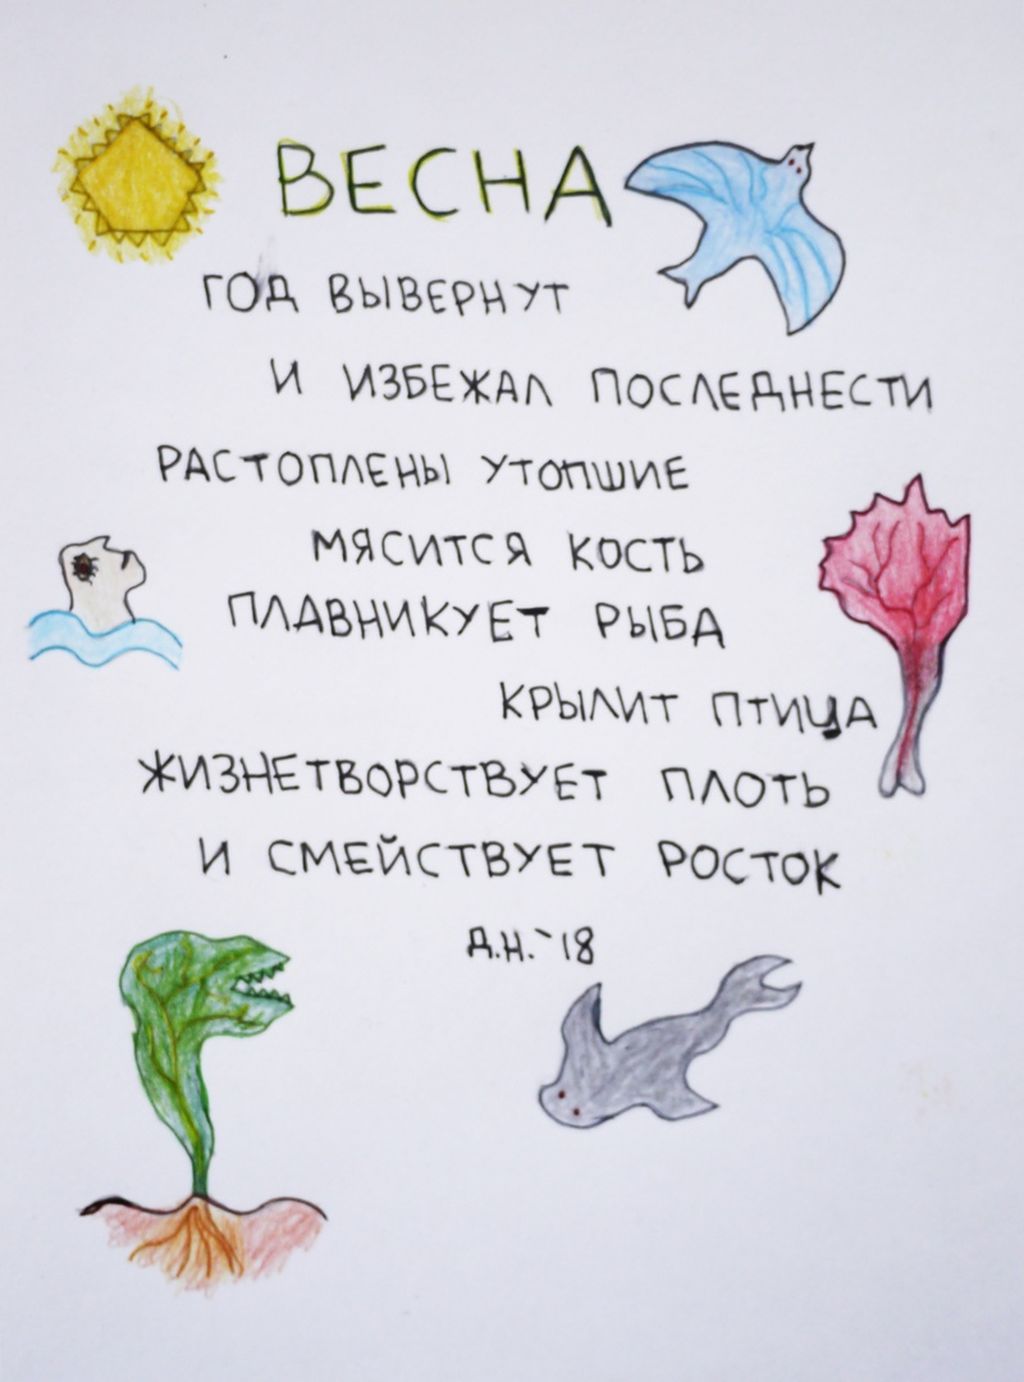 ВЕСНА
ГОД ВЫВЕРНУТ
И ИЗБЕЖАЛ ПОСЛЕДНЕСТИ
РАСТОПЛЕНЫ УТОПШИЕ
МЯСИТСЯ КОСТЬ
ПЛАВНИКУЕТ РЫБА
КРЫЛИТ ПТИЦА
ЖИЗНЕТВОРСТВУЕТ ПЛОТЬ
И СМЕЙСТВУЕТ РОСТОК
Д.Н.`18